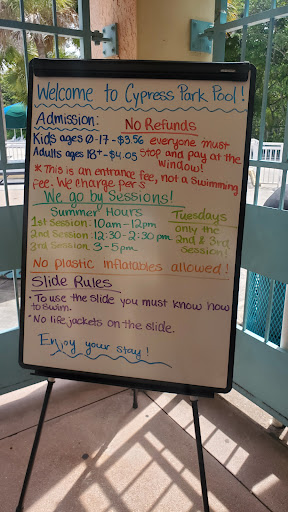 Welcome to Cypress Park Pool!
Admission:
No Refunds
Kids ages 0-17 - $3.56
Adults ages 18+ - $4.05
everyone must
stop and pay at the
window!
* This is an entrance fee, not a swimming
fee. We charge pers
We go by Sessions!
Summer Hours
1st Session: 10am-12pm
2nd Session: 12:30-2:30pm
3rd Session: 3-5pm
Tuesdays
only the
2nd & 3rd
Session!
No plastic inflatables allowed!
Slide Rules
* To use the slide you must know how
to swim.
* No life jackets on the slide.
Enjoy your stay!